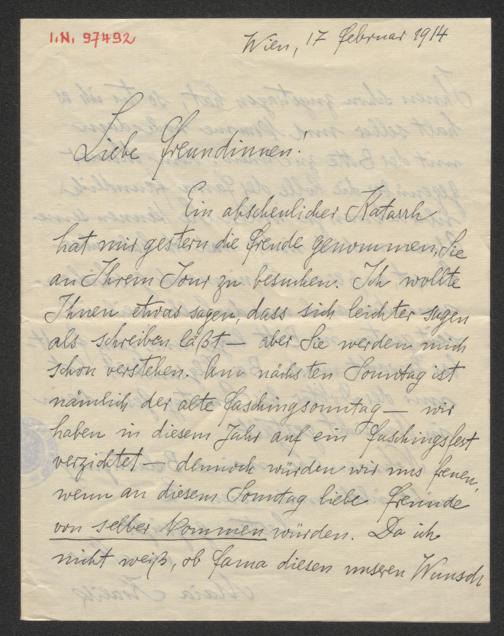 I.N. 97492
Wien, 17 Februar 1914
Liebe Freundinnen!
Ein abscheulicher Katarrh
hat mir gestern die Freude genommen, Sie
an Ihrem Jour zu besuchen. Ich wollte
Ihnen etwas sagen, dass sich leichter sagen
als schreiben läßt – aber Sie werden mich
schon verstehen. Am nächsten Sonntag ist
nämlich der alte Faschingsonntag – wir
haben in diesem Jahr auf ein Faschingsfest
verzichtet – dennoch würden wir uns freuen,
wenn an diesem Sonntag liebe Freunde
von selber kommen würden. Da ich
nicht weiß, ob Fama diesen unseren Wunsch